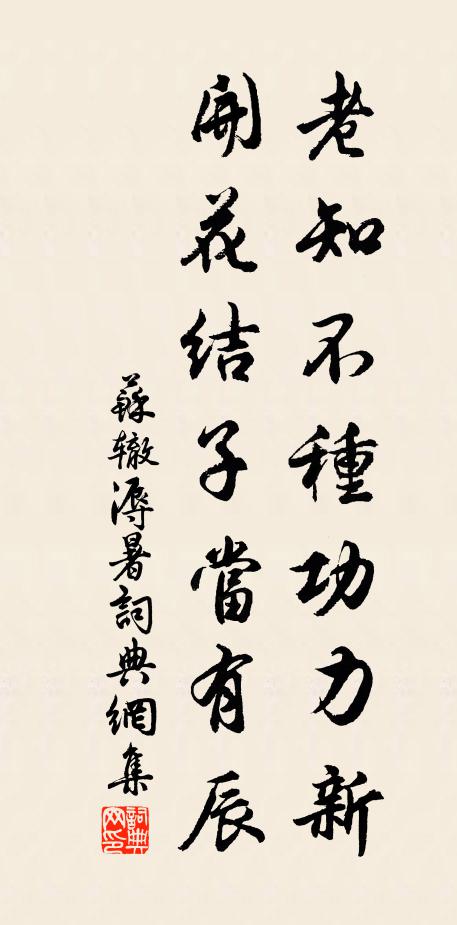 老知不種功力新
開花結子當有辰
蘇轍溽暑詞典網集
詞典网印